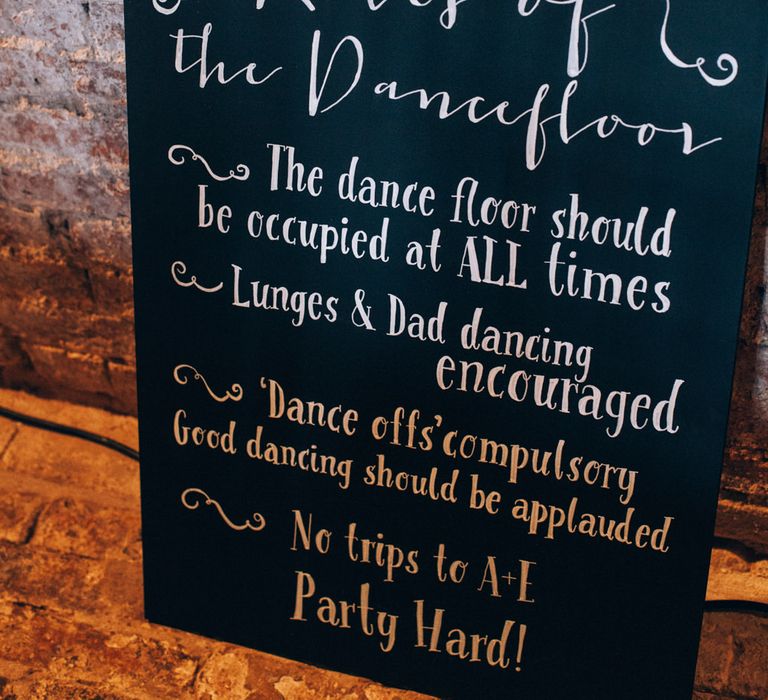 Rules of
the Dancefloor
The dance floor should
be occupied at ALL times
Lunges & Dad dancing
encouraged
'Dance offs' compulsory
Good dancing should be applauded
No trips to A+E
Party Hard!